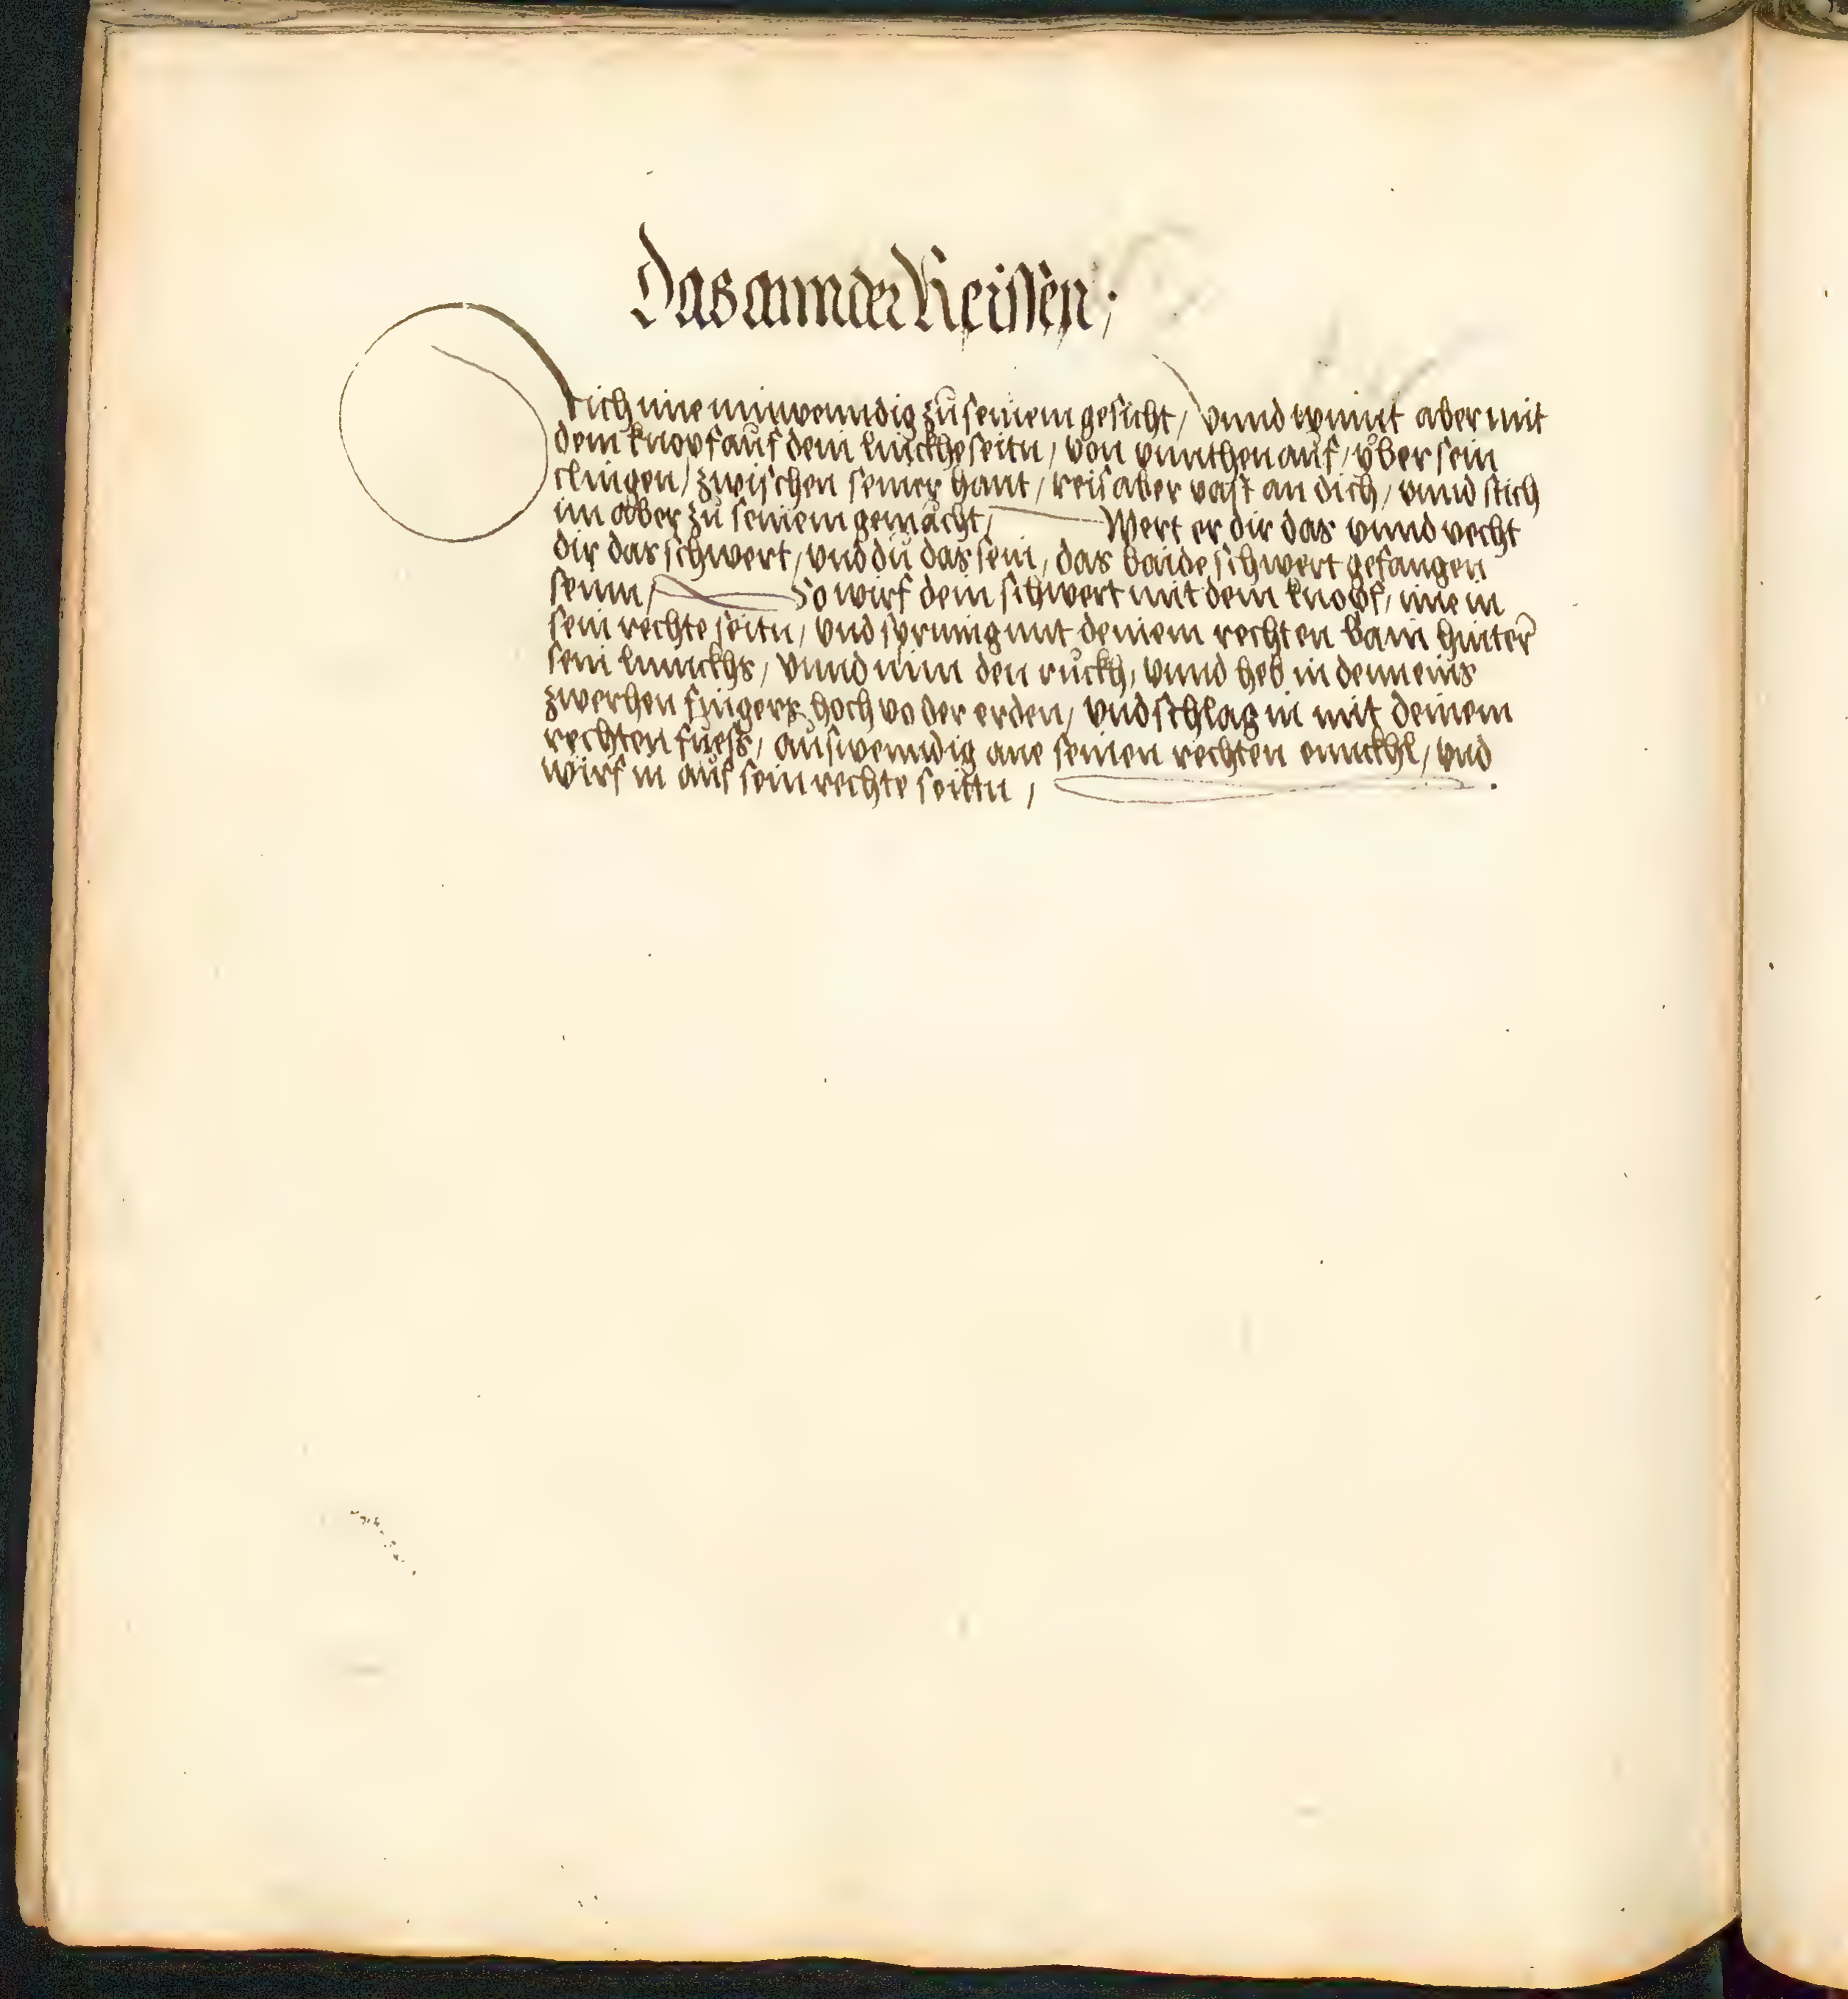 Das annder Reissen;
Stich ime innwenndig zů seinem gesicht / vnnd winnt aber mit
dem knopf auf dein linckhe seitn / von vnnthen auf / vber sein
clingen / zwischen seiner hant / reis aber vast an dich / vnnd stich
im aber zů seinem gemächt / Wert er dir das vnnd vecht
dir das schwert / vnd dů das sein / das baide schwert gefangen
seinn / So wirf dein schwert mit dem knopf / ime in
sein rechte seitn / vnd sprinng mit deinem rechten bain hinter
sein linnckhs / vnnd nim den růckh / vnnd heb in dennein's
zwerhen fingers hoch vo der erden / vnd schlag in mit deinem
rechten fuess / auswenndig ane seinen rechten ennckhl / vnd
wirf in auf sein rechte seittn / .